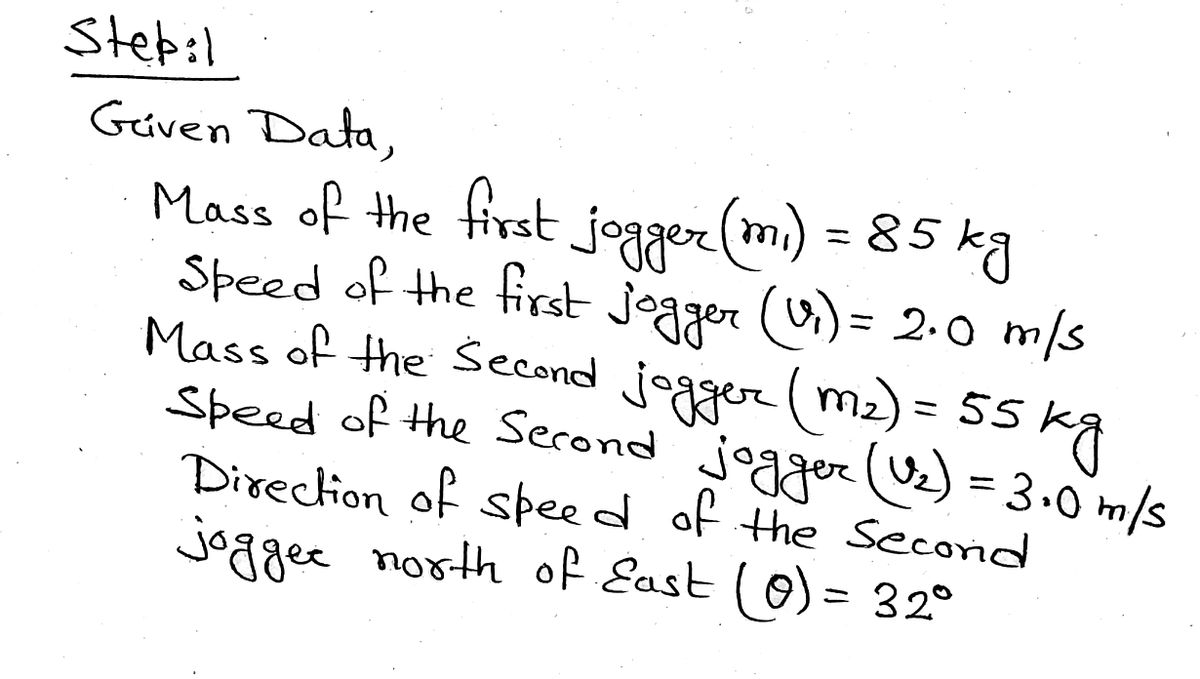 Step:1
Given Data,
Mass of the first jogger (m₁) = 85 kg
Speed of the first jogger (v₁) = 2.0 m/s
Mass of the Second jogger (m₂) = 55 kg
Speed of the Second jogger (v₂) = 3.0 m/s
Direction of speed of the Second
jogger north of East (θ) = 32°